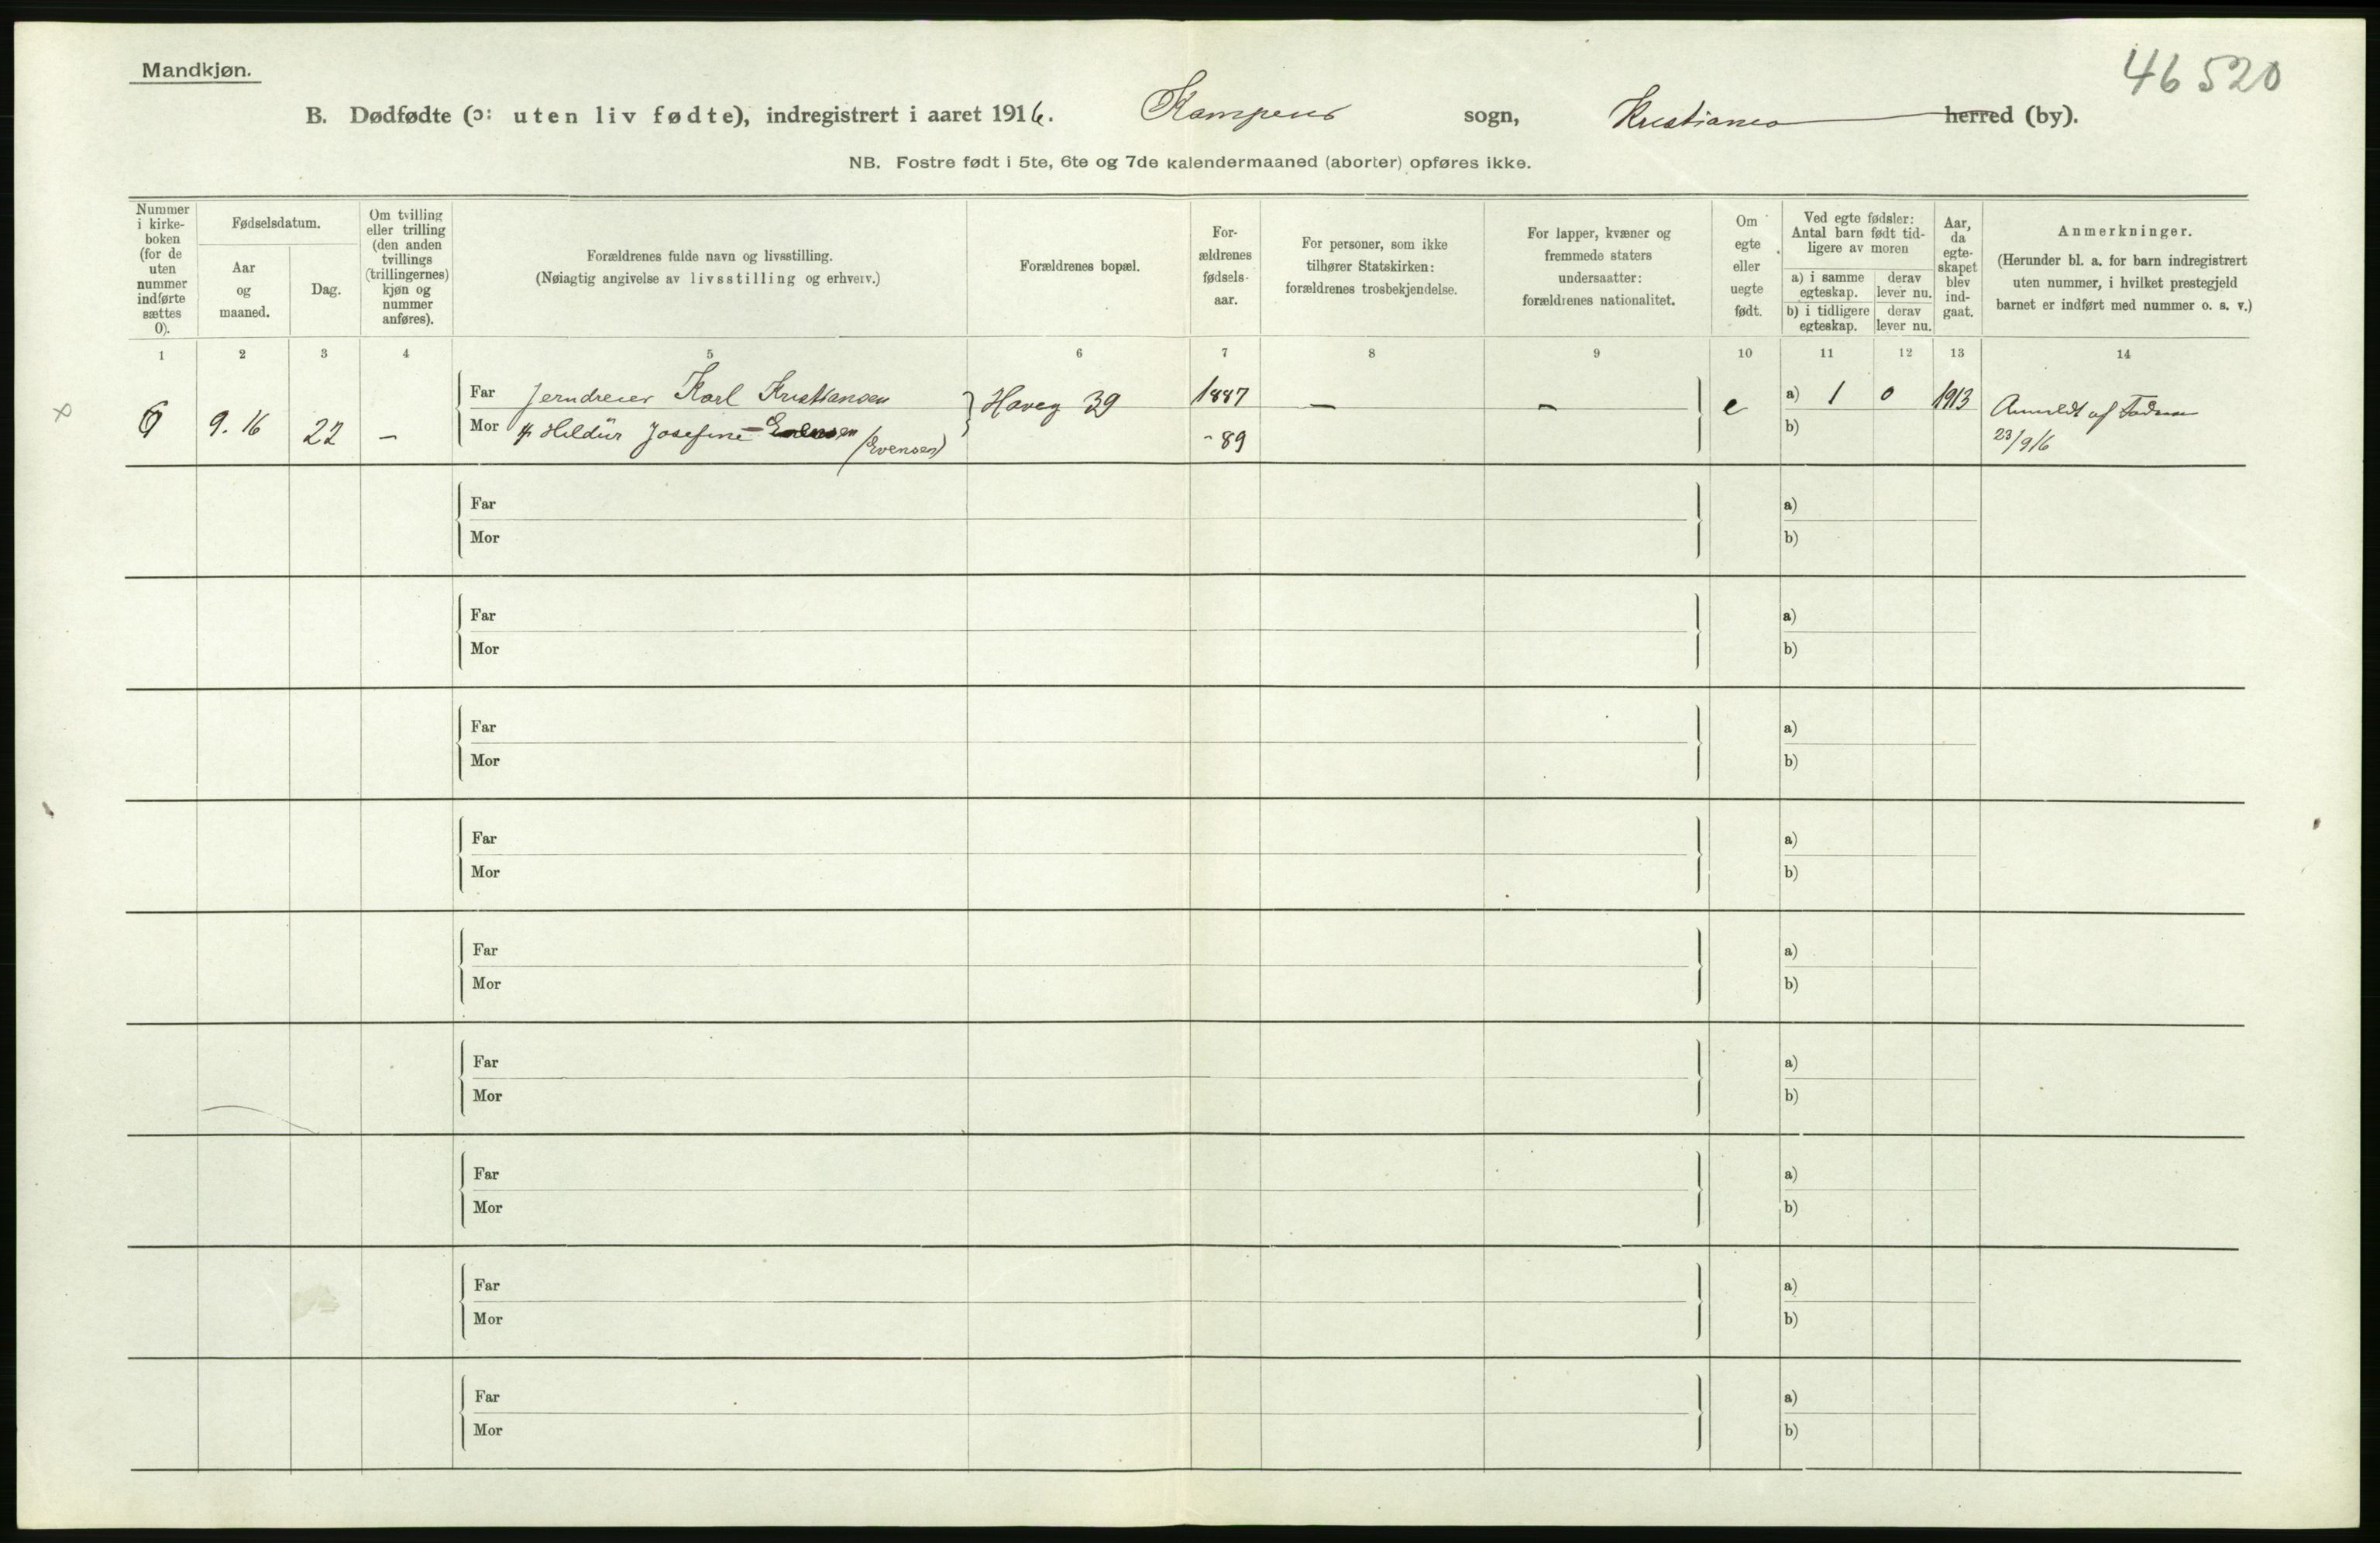 Mandkjøn.
46 520
B. Dødfødte (ɔ: uten liv fødte), indregistrert i aaret 1916. Kampens sogn, Kristiania herred (by).
NB. Fostre født i 5te, 6te og 7de kalendermaaned (aborter) opføres ikke.
Nummer i kirke-boken (for de uten nummer indførte sættes 0).
Fødselsdatum.
Aar og maaned.
Dag.
Om tvilling eller trilling (den anden tvillings (trillingernes) kjøn og nummer anføres).
Forældrenes fulde navn og livsstilling.
(Nøiagtig angivelse av livsstilling og erhverv.)
Forældrenes bopæl.
For-ældrenes fødsels-aar.
For personer, som ikke tilhører Statskirken: forældrenes trosbekjendelse.
For lapper, kvæner og fremmede staters undersaatter: forældrenes nationalitet.
Om egte eller uegte født.
Ved egte fødsler: Antal barn født tid-ligere av moren
a) i samme egteskap.
derav lever nu.
b) i tidligere egteskap.
derav lever nu.
Aar, da egte-skapet blev ind-gaat.
Anmerkninger.
(Herunder bl. a. for barn indregistrert uten nummer, i hvilket prestegjeld barnet er indført med nummer o. s. v.)
1 2 3 4 5 6 7 8 9 10 11 12 13 14
Far Jerndreier Karl Kristiansen Haveg 39 1887 — — e a) 1 0 1913 Anmeldt af Fadren
6 9. 16 22 — Mor Hildur Josefine (Evensen) - 89 b) 23/9 16
Far a)
Mor b)
Far a)
Mor b)
Far a)
Mor b)
Far a)
Mor b)
Far a)
Mor b)
Far a)
Mor b)
Far a)
Mor b)
Far a)
Mor b)
Far a)
Mor b)